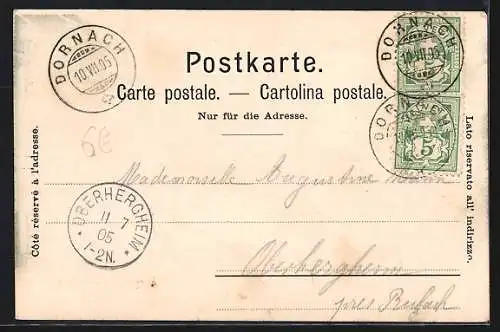 DORNACH
10.VII.05
DORNACH
10.VII.05
Postkarte.
Carte postale. — Cartolina postale.
Nur für die Adresse.
DORNACH
5
6€
Côté réservé à l'adresse.
Lato riservato all' indirizzo.
Mademoiselle Augustine
OBERHERGHEIM
11 7
05
1-2N.
Oberhergheim
près